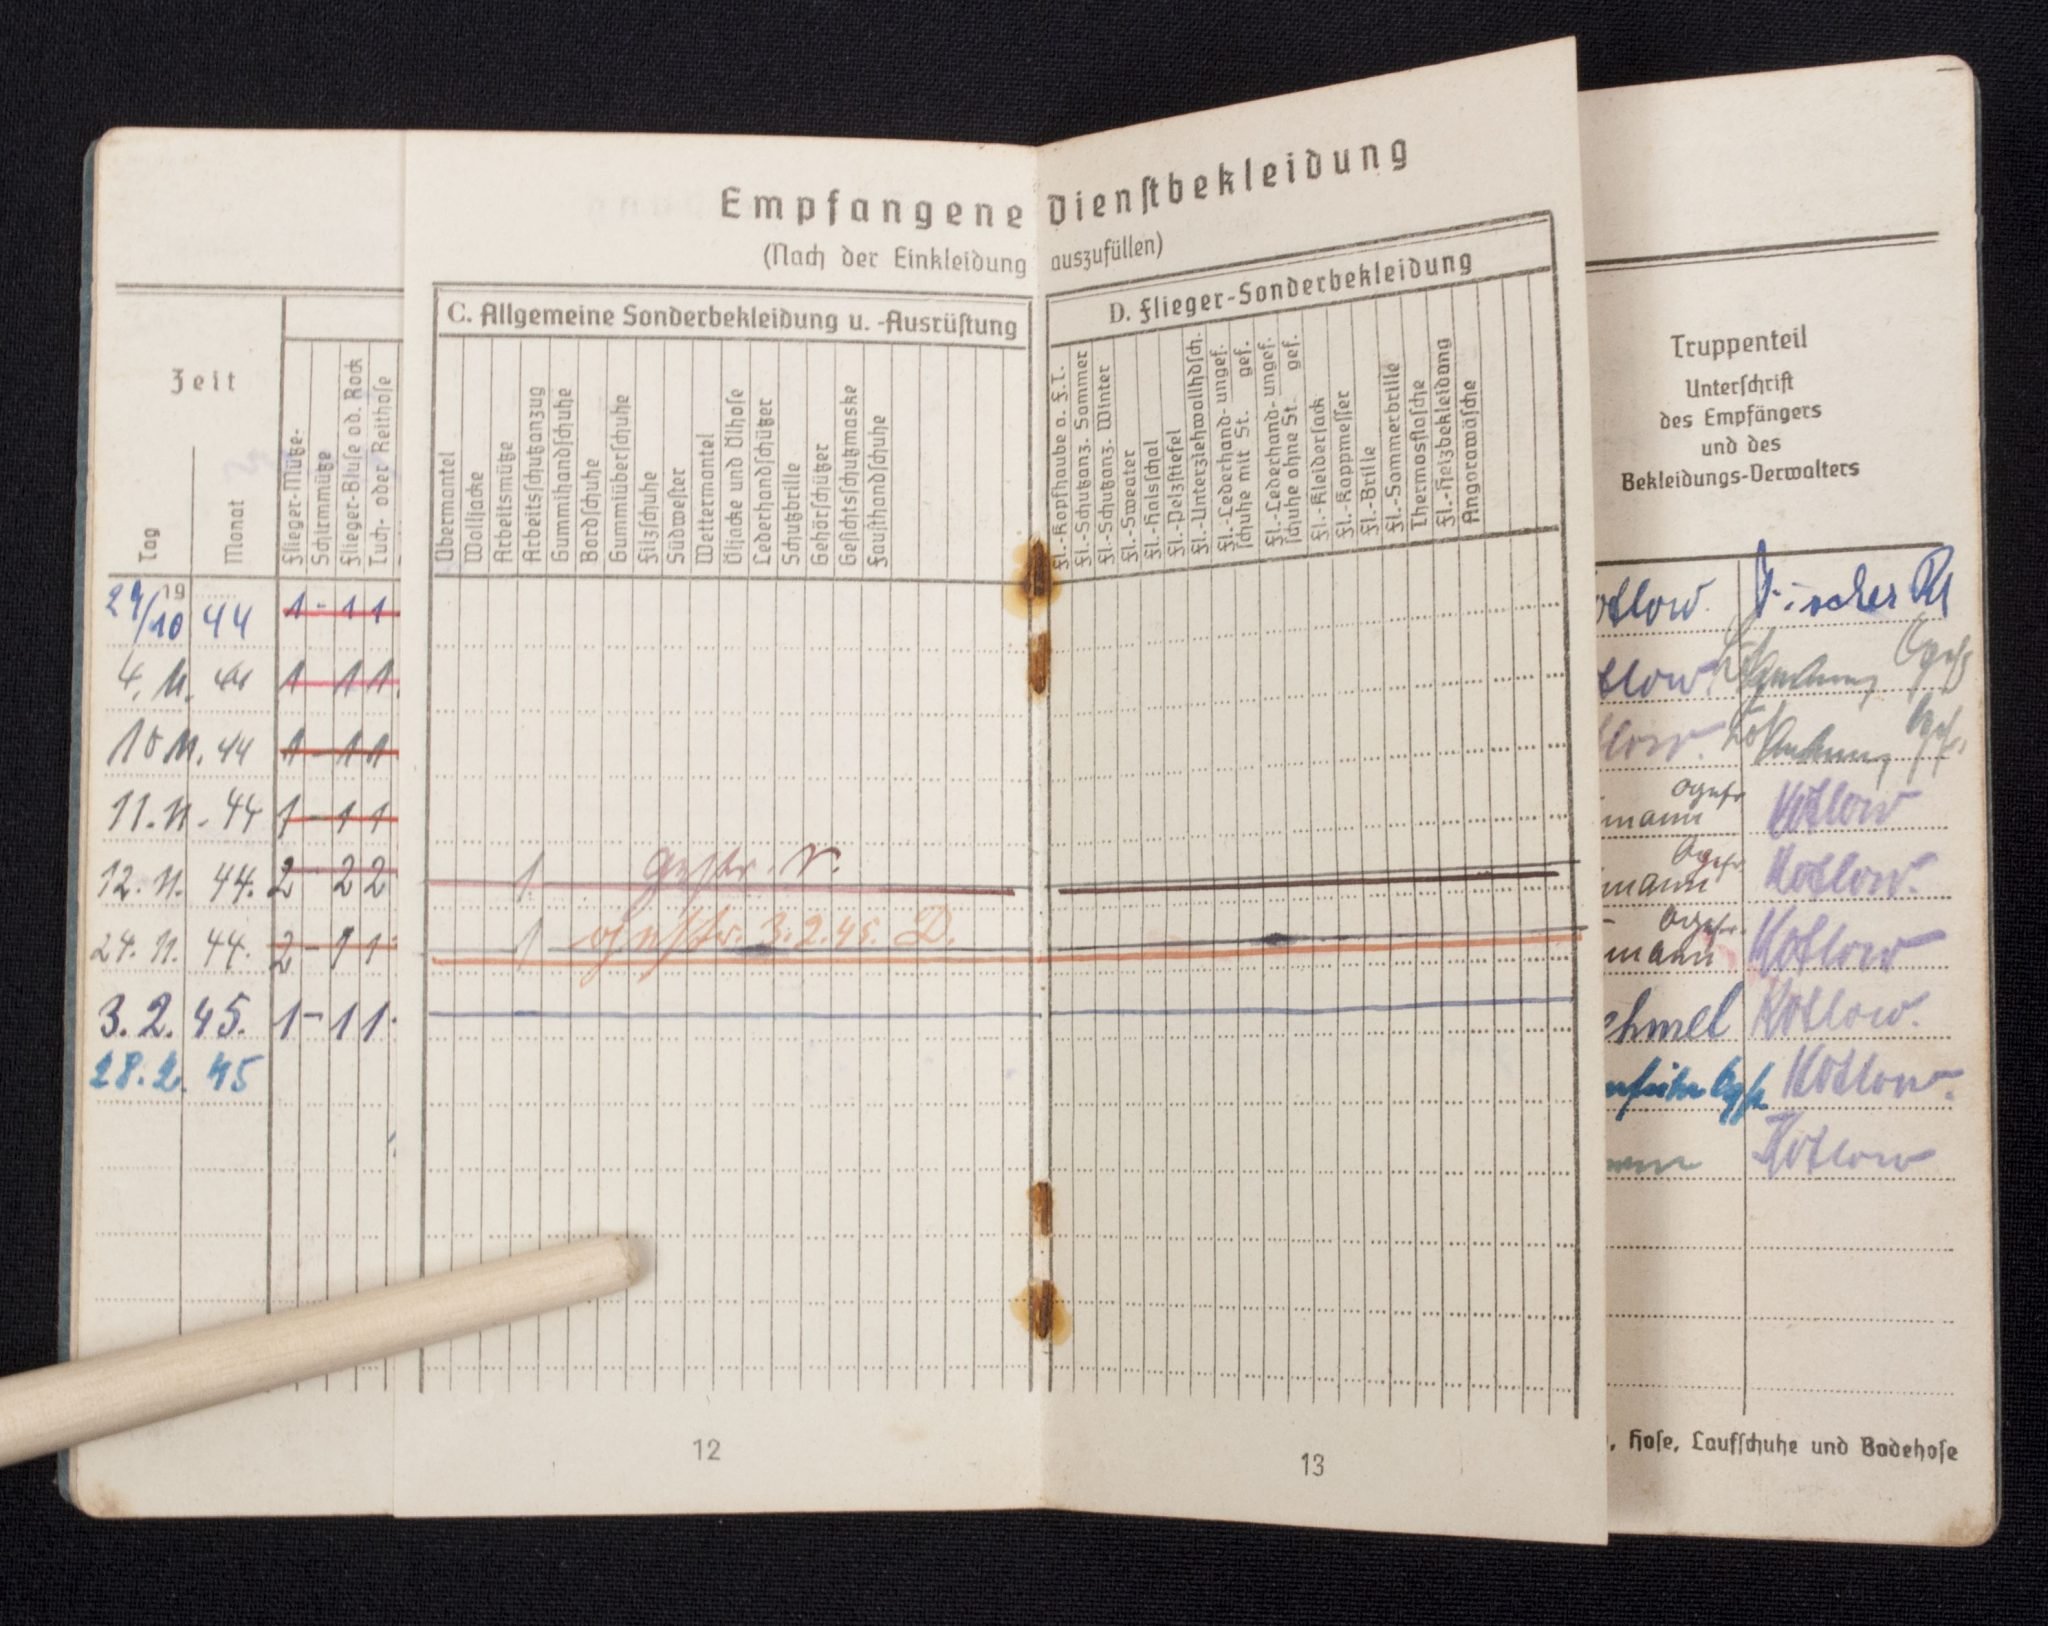 Empfangene Dienstbekleidung
(Nach der Einkleidung auszufüllen)
C. Allgemeine Sonderbekleidung u. -Ausrüstung
D. Flieger-Sonderbekleidung
Zeit
Tag
Monat
Flieger-Mütze-
Schirmmütze
Flieger-Bluse od. Rock
Tuch- oder Reithose
Übermantel
Wolljacke
Arbeitsmütze
Arbeitsschutzanzug
Gummihandschuhe
Bordschuhe
Gummiüberschuhe
Filzschuhe
Südwester
Wettermantel
Öljacke und Ölhose
Lederhandschützer
Schutzbrille
Gehörschützer
Gesichtsschutzmaske
Fausthandschuhe
Fl.-Kopfhaube a. F.T.
Fl.-Schutzanz. Sommer
Fl.-Schutzanz. Winter
Fl.-Sweater
Fl.-Halsschal
Fl.-Pelzstiefel
Fl.-Unterziehwollhdsch.
Fl.-Lederhand- ungef.
schuhe mit St. gef.
Fl.-Lederhand- ungef.
schuhe ohne St. gef.
Fl.-Kleidersack
Fl.-Kappmesser
Fl.-Brille
Fl.-Sommerbrille
Thermosflasche
Fl.-Heizbekleidung
Angorawäsche
Truppenteil
Unterschrift
des Empfängers
und des
Bekleidungs-Verwalters
19
29/10 44 1 - 1 1 otlow. Fischer
4. 11. 44 1 - 1 1 tlow
10 11. 44 1 - 1 1 low.
11. 11. 44 1 - 1 1 mann Ogefr Kotlow
12. 11. 44. 2 - 2 2 1 gestr. mann Ogefr Kotlow.
24. 11. 44. 2 - 1 1 1 gestr. 3.2.45. D. mann Ogefr. Kotlow
3. 2. 45. 1 - 1 1 ehmel Kotlow.
28. 2. 45 Kotlow.
Kotlow
, Hose, Laufschuhe und Badehose
12
13